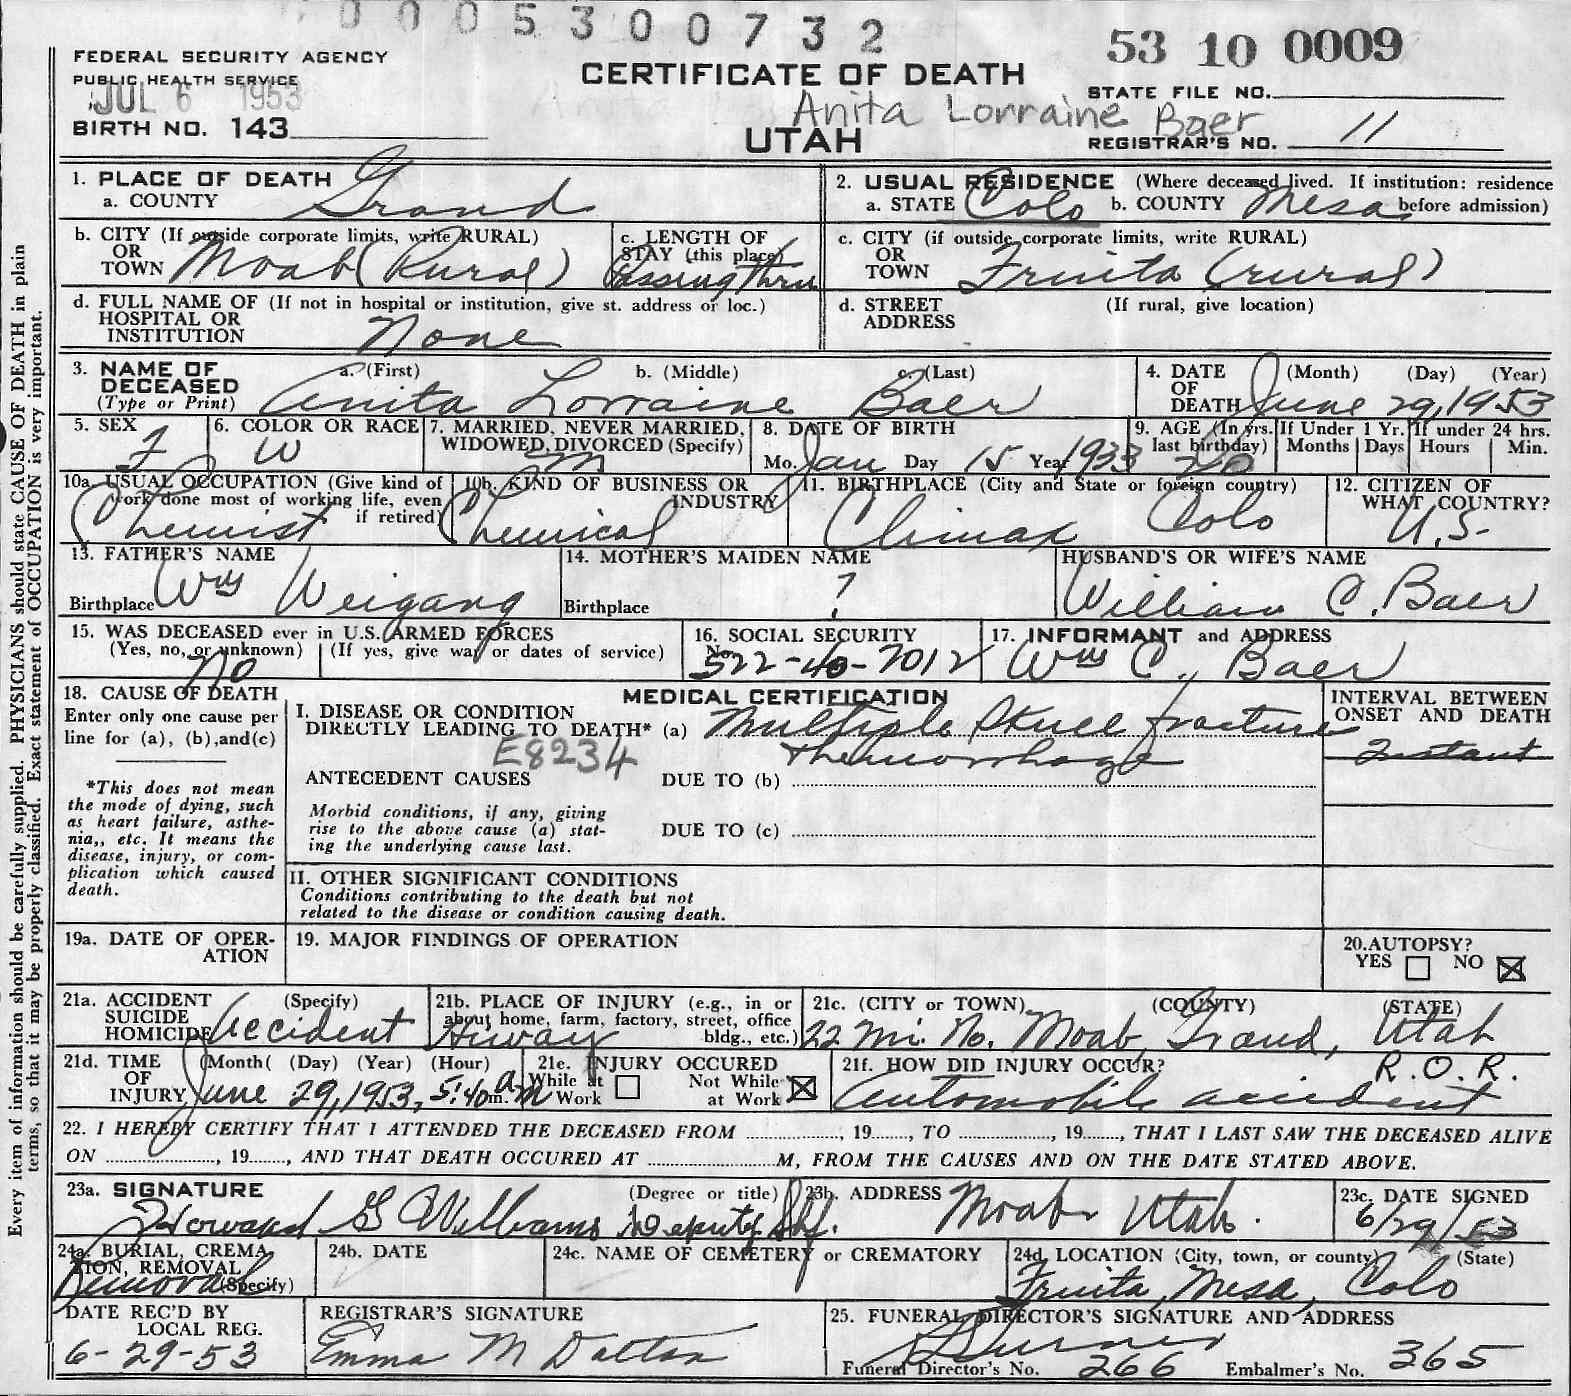 0005300732
53 10 0009
FEDERAL SECURITY AGENCY
PUBLIC HEALTH SERVICE
JUL 6 1953
BIRTH NO. 143
CERTIFICATE OF DEATH
Anita Lorraine Baer
UTAH
STATE FILE NO.
REGISTRAR'S NO. 11
Every item of information should be carefully supplied. PHYSICIANS should state CAUSE OF DEATH in plain
terms, so that it may be properly classified. Exact statement of OCCUPATION is very important.
1. PLACE OF DEATH
a. COUNTY Grand
2. USUAL RESIDENCE (Where deceased lived. If institution: residence
a. STATE Colo b. COUNTY Mesa before admission)
b. CITY (If outside corporate limits, write RURAL)
OR
TOWN Moab (Rural)
c. LENGTH OF
STAY (this place)
Passing thru
c. CITY (if outside corporate limits, write RURAL)
OR
TOWN Fruita (rural)
d. FULL NAME OF (If not in hospital or institution, give st. address or loc.)
HOSPITAL OR
INSTITUTION None
d. STREET (If rural, give location)
ADDRESS
3. NAME OF a. (First) b. (Middle) c. (Last)
DECEASED
(Type or Print) Anita Lorraine Baer
4. DATE (Month) (Day) (Year)
OF
DEATH June 29, 1953
5. SEX
F
6. COLOR OR RACE
W
7. MARRIED, NEVER MARRIED,
WIDOWED, DIVORCED (Specify)
m
8. DATE OF BIRTH
Mo. Jan Day 15 Year 1933
9. AGE (In yrs. If Under 1 Yr. If under 24 hrs.
last birthday) Months Days Hours Min.
20
10a. USUAL OCCUPATION (Give kind of
work done most of working life, even
if retired)
Chemist
10b. KIND OF BUSINESS OR
INDUSTRY
Chemical
11. BIRTHPLACE (City and State or foreign country)
Climax Colo
12. CITIZEN OF
WHAT COUNTRY?
U.S.
13. FATHER'S NAME
Wm Weigang
Birthplace
14. MOTHER'S MAIDEN NAME
?
Birthplace
HUSBAND'S OR WIFE'S NAME
William C. Baer
15. WAS DECEASED ever in U.S. ARMED FORCES
(Yes, no, or unknown) (If yes, give war or dates of service)
No
16. SOCIAL SECURITY
No.
522-40-7012
17. INFORMANT and ADDRESS
Wm C. Baer
18. CAUSE OF DEATH
Enter only one cause per
line for (a), (b), and (c)
*This does not mean
the mode of dying, such
as heart failure, asthe-
nia,, etc. It means the
disease, injury, or com-
plication which caused
death.
MEDICAL CERTIFICATION
I. DISEASE OR CONDITION
DIRECTLY LEADING TO DEATH* (a) Multiple Skull fracture
& hemorrhage
E8234
ANTECEDENT CAUSES DUE TO (b)
Morbid conditions, if any, giving
rise to the above cause (a) stat-
ing the underlying cause last.
DUE TO (c)
INTERVAL BETWEEN
ONSET AND DEATH
Instant
II. OTHER SIGNIFICANT CONDITIONS
Conditions contributing to the death but not
related to the disease or condition causing death.
19a. DATE OF OPER-
ATION
19. MAJOR FINDINGS OF OPERATION
20. AUTOPSY?
YES NO
21a. ACCIDENT (Specify)
SUICIDE
HOMICIDE Accident
21b. PLACE OF INJURY (e.g., in or
about home, farm, factory, street, office
bldg., etc.)
Hiway
21c. (CITY or TOWN) (COUNTY) (STATE)
22 mi. No. Moab, Grand, Utah
21d. TIME (Month( (Day) (Year) (Hour)
OF
INJURY June 29, 1953, 5:40 a m.
21e. INJURY OCCURED
While at Not While
Work at Work
21f. HOW DID INJURY OCCUR? R.O.R.
Automobile accident
22. I HEREBY CERTIFY THAT I ATTENDED THE DECEASED FROM , 19 , TO , 19 , THAT I LAST SAW THE DECEASED ALIVE
ON , 19 , AND THAT DEATH OCCURED AT M, FROM THE CAUSES AND ON THE DATE STATED ABOVE.
23a. SIGNATURE (Degree or title)
Howard G Williams Deputy Shf.
23b. ADDRESS
Moab Utah.
23c. DATE SIGNED
6/29/53
24a. BURIAL, CREMA
TION, REMOVAL
(Specify)
Removal
24b. DATE
24c. NAME OF CEMETERY or CREMATORY
24d. LOCATION (City, town, or county) (State)
Fruita, Mesa, Colo
DATE REC'D BY
LOCAL REG.
6-29-53
REGISTRAR'S SIGNATURE
Emma M Dalton
25. FUNERAL DIRECTOR'S SIGNATURE AND ADDRESS
Funeral Director's No. 266 Embalmer's No. 365